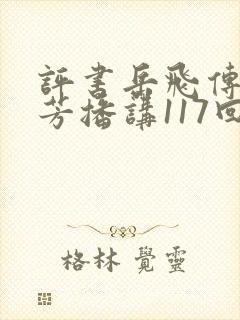 評書岳飛傳
芳播講117回
格林 覺靈